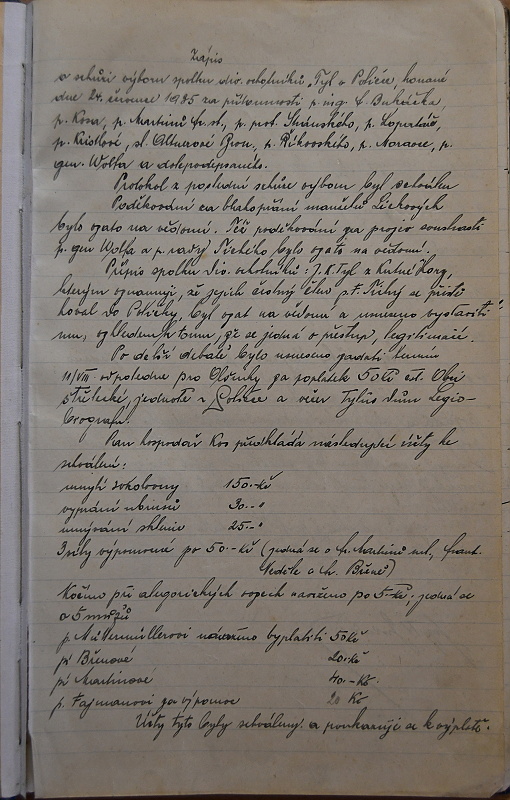 Zápis
o schůzi výboru spolku div. ochotníků „Tyl" v Poličce, konané
dne 24. července 1935 za přítomnosti p. ing. C. Bukáčka,
p. Kosa, p. Martinů fr. st., p. prof. Stránského, p. Lopatáře,
p. Kristlové, sl. Brou, p. Říkovského, p. Moravce, p.
gen. Wolfa a dolepodepsaného.
Protokol z poslední schůze výboru byl schválen
Poděkování za blahopřání manželů Lickových
bylo vzato na vědomí. Též poděkování za projev soustrasti
p. gen Wolfa a p. rady Tichého bylo vzato na vědomí.
Přípis spolku div. ochotníků: J. K. Tyl z Kutné Hory,
kterým oznamují, že jejich čestný člen p. f. Tichý se přistě-
hoval do Poličky, byl vzat na vědomí a usneseno vystaviti
mu, vzhledem k tomu, že se jedná o přestup, legitimaci.
Po delší debatě bylo usneseno zadati termín
11/VIII. odpoledne pro za poplatek 50 Kč
střelecké, jednotě v a večer Tylův dům Legio-
Pan hospodář Kos předkládá následující účty ke
schválení:
mytí sokolovny 150.-Kč
vyprání ubrusů 30.- "
umývání sklenic 25.- "
3 síly výpomocné po 50.-Kč (jedná se o fr. Martinů ml., frant.
Neděle a fr. Břeně)
při alegorických vozech navrženo po 5.-Kč; jedná se
o 5 mužů
p. Müttermüllerovi navrženo vyplatiti 50 Kč
pí Břenové 20.-Kč
pí Martinové 40.-Kč.
p. Fajmanovi za výpomoc 20 Kč
Účty tyto byly schváleny a poukazují se k výplatě.